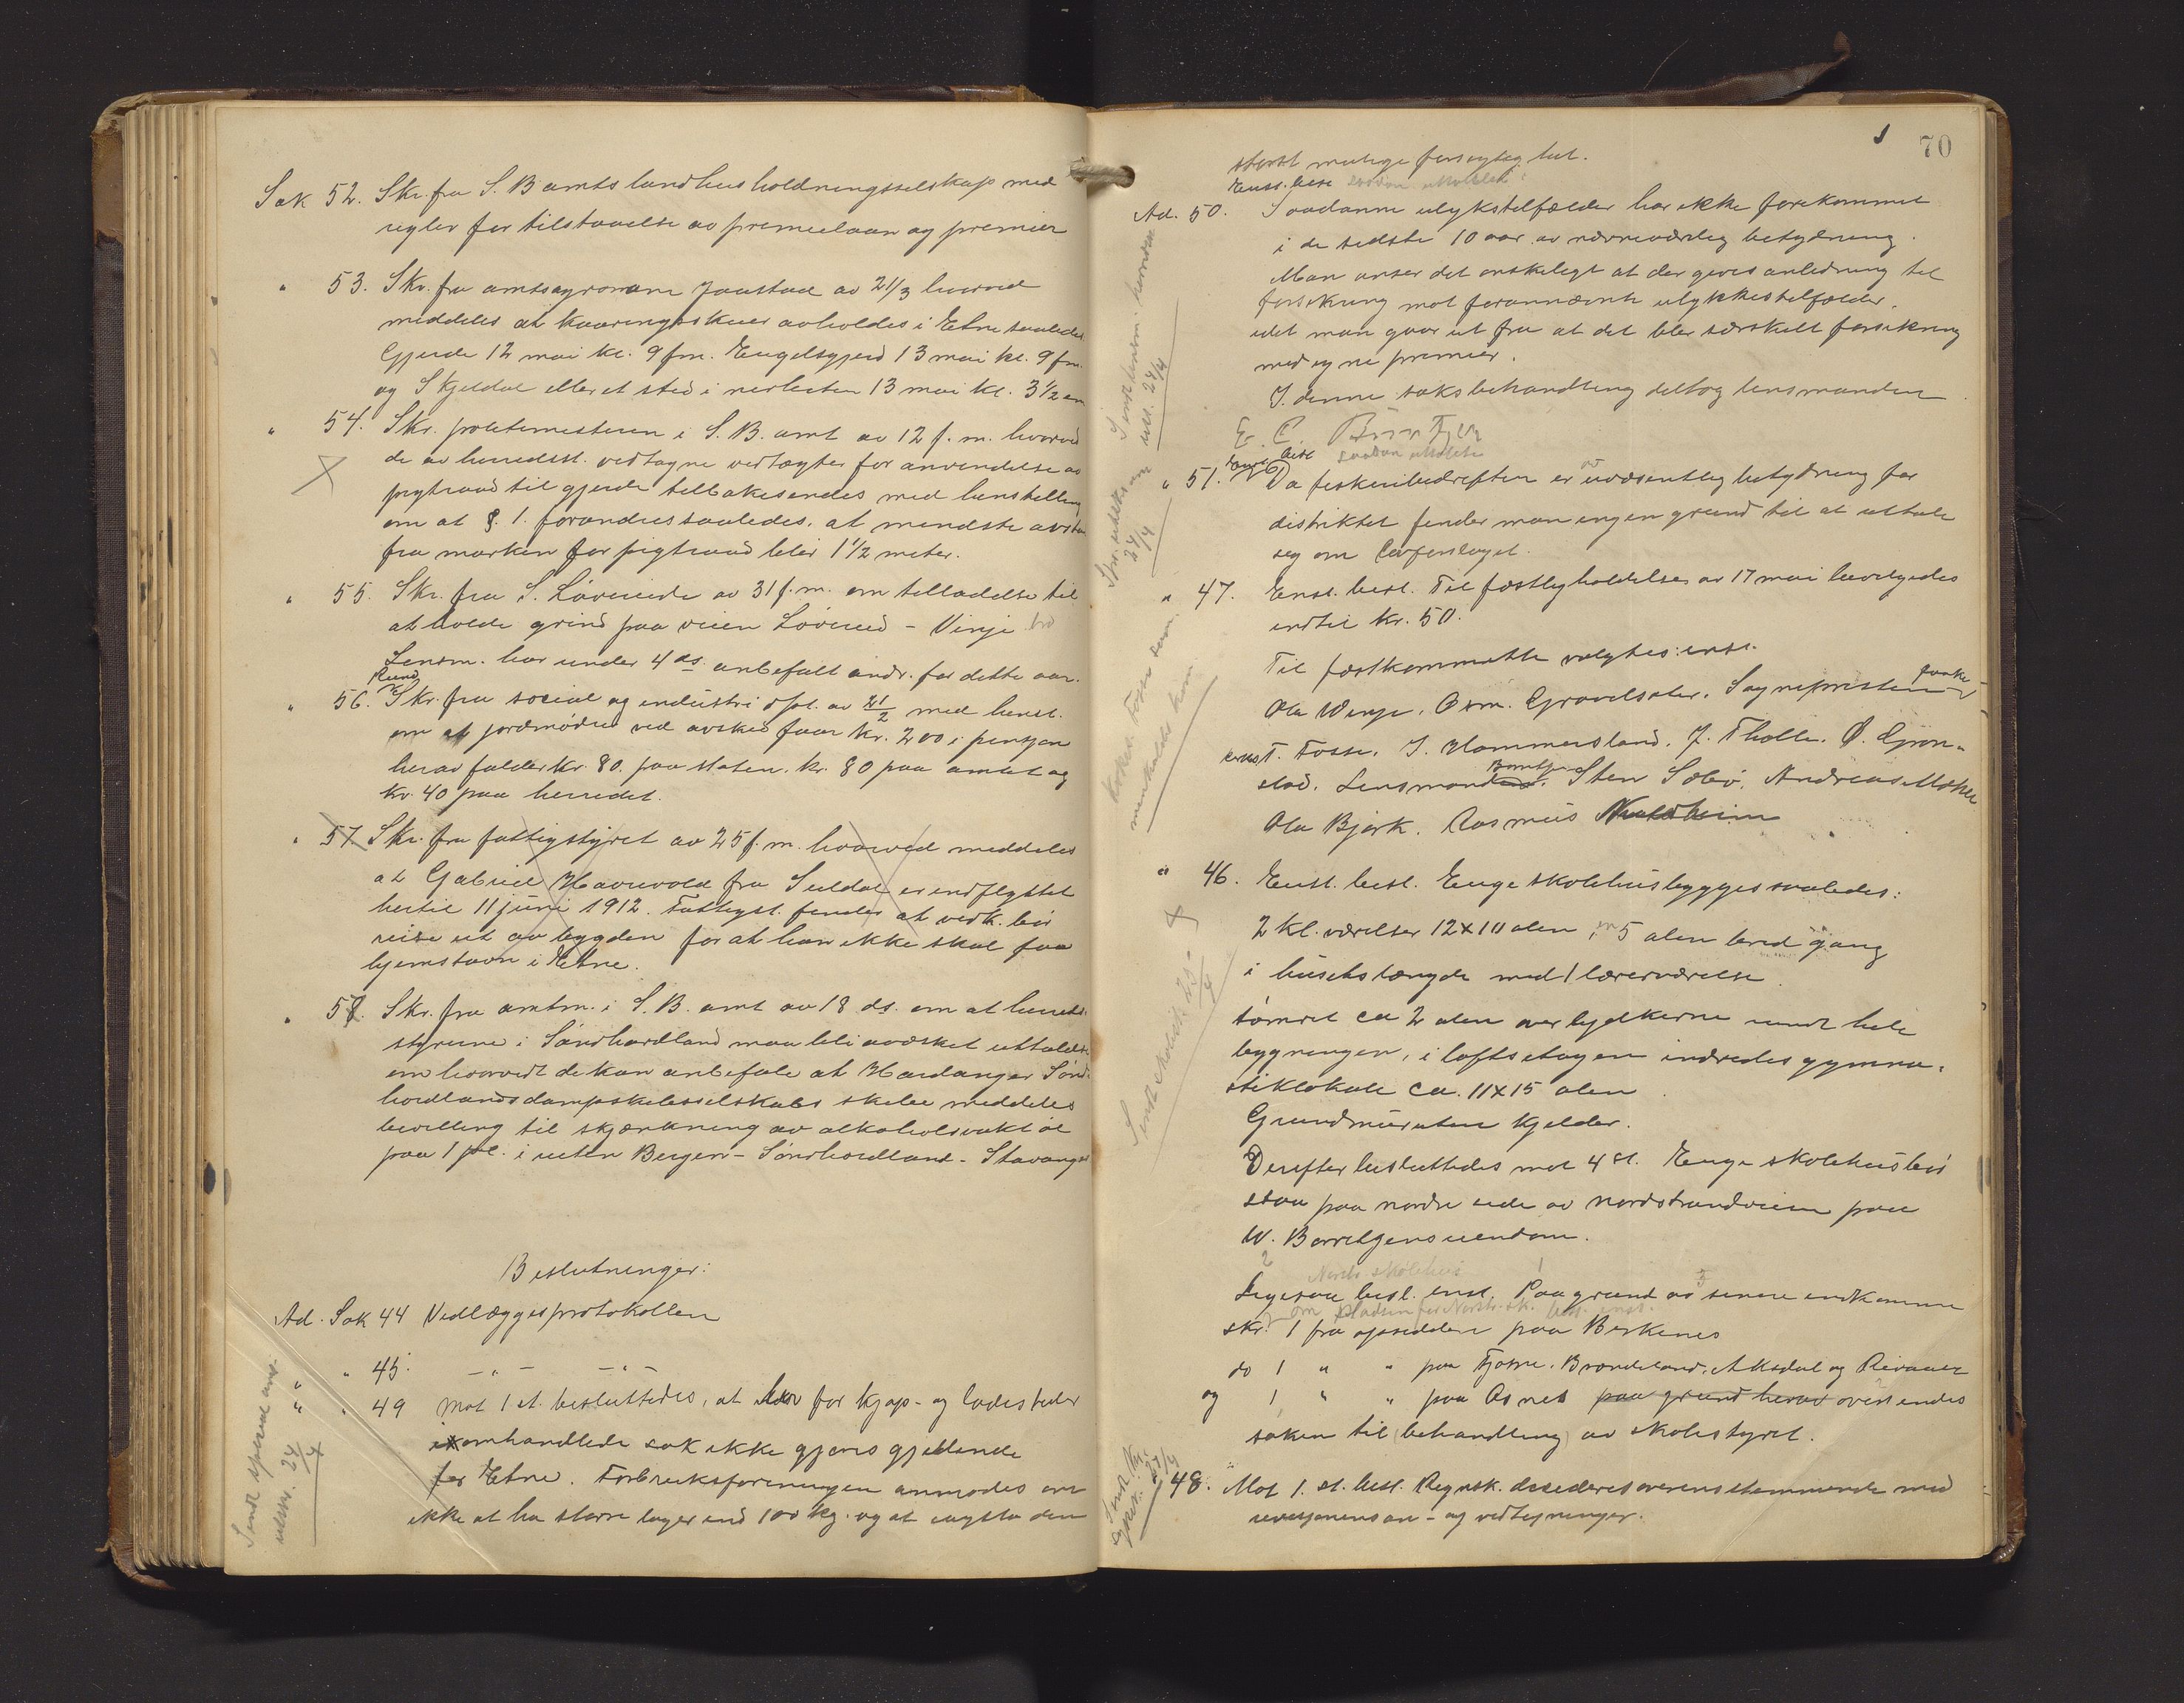 Sak 52. Skr. fra S. B amts landhusholdningsselskap med
regler for tilstaaelse av premielaan og premier
" 53. Skr. fra amtsagronom Jaastad av 21/3 hvorved
meddeles at kaaringsskuer avholdes i Etne saaledes
Gjerde 12 mai kl. 9 fm. Engelsgjerd 13 mai kl. 9 fm.
og Skjeldal eller et sted i nerheten 13 mai kl. 3 1/2 em
" 54. Skr. politimesteren i S. B. amt av 12 f. m. hvorved
de av herredsst. vedtagne vedtægter for anvendelse av
pigtraad til gjerde tilbakesendes med henstilling
om at §. 1. forandres saaledes, at mindste avstan
fra marken for pigtraad blir 1 1/2 meter.
" 55. Skr. fra S. Løvereide av 31 f. m. om tilladelse til
at holde grind paa veien Løvereid - Vinje
Lensm. har under 4 ds. anbefalt andr. for dette aar.
Rund
" 56. Skr. fra social og industri dpt. av 21/2 med henst.
om at jordmødre ved avsked faar kr. 200 i pensjon
herav falder kr. 80. paa staten. kr. 80 paa amtet og
kr. 40 paa herredet.
" 57 Skr. fra fattigstyret av 25 f. m. hvorved meddeles
at Gabriel Havrevold fra Suldal er indflyttet
hertil 11 juni 1912. Fattigst. finder at vedk. bør
reise ut av bygden for at han ikke skal faa
hjemstavn i Etne.
" 58. Skr. fra amtm. i S. B. amt av 18 ds. om at herreds-
styrerne i Søndhordland maa bli avæsket uttalelse
om hvorvidt de kan anbefale at Hardanger Sønd-
hordlands dampskibsselskabs skibe meddeles
bevilling til skjænkning av alkoholsvakt øl
paa 1 pl. i ruten Bergen - Søndhordland - Stavanger
Beslutninger:
Ad. Sak 44 Vedlægges protokollen
" " 45. - " - - " -
" " 49 Mot 1 st. besluttedes, at lov for kjøp- og ladesteder
i omhandlede sak ikke gjøres gjeldende
for Etne. Forbruksforeningen anmodes om
ikke at ha større lager end 100 kg. og at iagtta den
Sendt
utskr. 24/4
70
størst mulige forsigtighet.
Enst. besl.
Ad. 50. Saadanne ulykstilfælder har ikke forekommet
i de sidste 10 aar av nævneværdig betydning.
Man anser det ønskeligt at der gives anledning til
forsikring mot forannævnte ulykkestilfælder,
idet man gaar ut fra at det blir særskilt forsikring
med egne premier.
I denne saksbehandling deltog lensmanden
Enst. besl. saadan uttalelse
" 51. Da fiskeribedriften er av uvæsentlig betydning for
distriktet finder man ingen grund til at uttale
seg om lovforslaget.
" 47. Enst. besl. Til festligholdelse av 17 mai bevilgedes
indtil kr. 50.
Til festkommitte valgtes: enst.
Ola Vinje. Asm. Grovelsæter. Sognepresten
T. Fosse. I. Hammersland. J. Tholle. Ø. Grøn-
stad. Lensmanden. Sten Sæbø. Andreas
Ola Bjørk. Rasmus
" 46. Enst. besl. Enge skolehus bygges saaledes:
2 kl. værelser 12 x 10 alen, en 5 alen bred gang
i husets længde med 1 lærerværelse.
tømret ca 2 alen over bjelkerne rundt hele
bygningen, i loftsetagen indredes gymna-
stiklokale ca. 11 x 15 alen.
Grundmur uten kjelder.
Derefter besluttedes mot 4 st. Enge skolehus bør
staa paa nordre side av nordstrandveien paa
W. Børretzens eiendom.
2 Nordr. skolehus 1 3
Ligesaa besl. enst. Paa grund av senere indkomne
om pladsen for Nordstr. sk. besl. enst.
skr. 1 fra opsiddere paa Birkenes
do 1 " " paa Fjøsne. Brendeland. Aksdal og
og 1 " " paa Osnes paa grund herav oversendes
saken til behandling av skolestyret.
48. Mot 1. st. besl. Regnsk. desideres overensstemmende med
revisjonens an- og vedtegninger.
Sendt skolest. 23/4